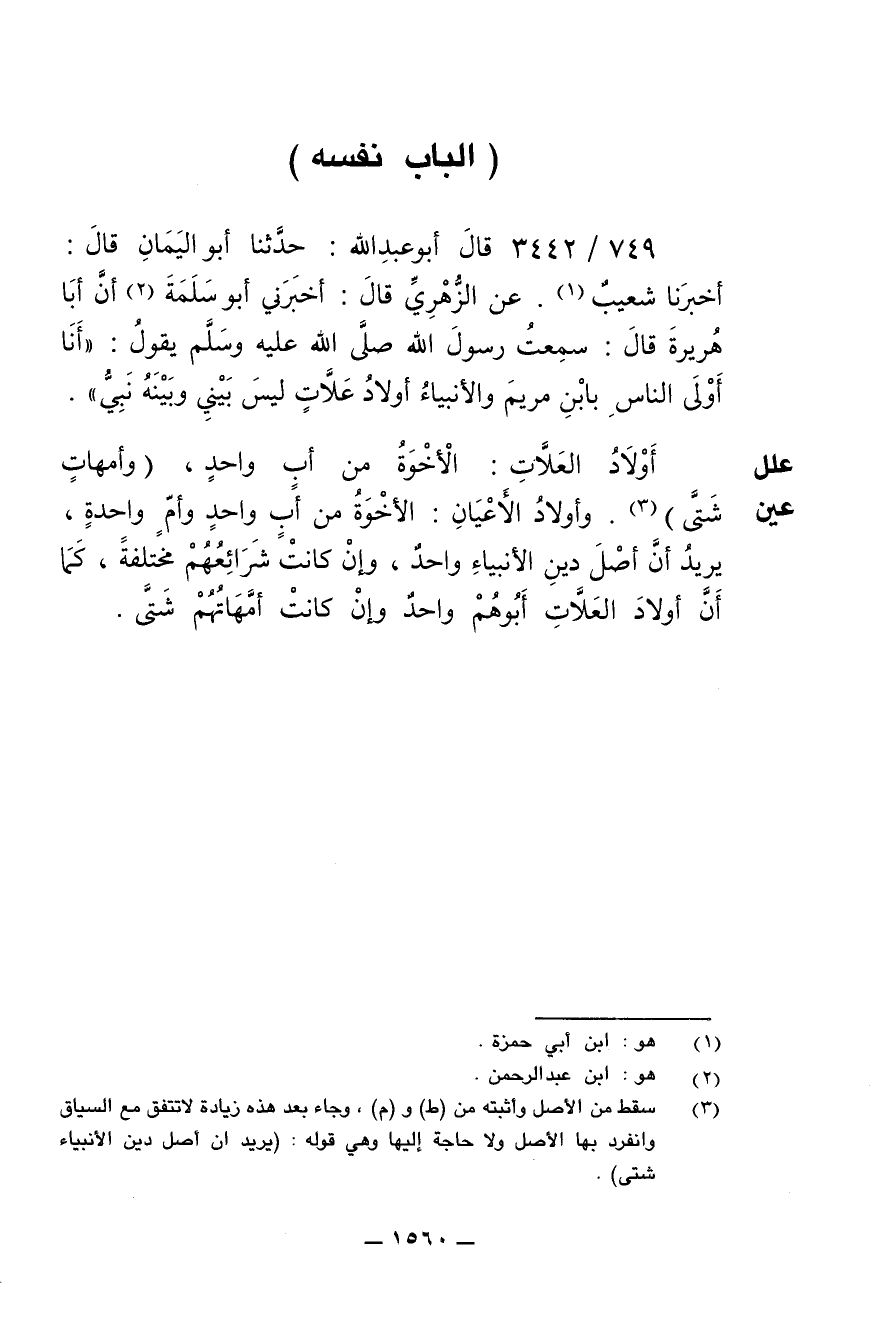 ( الباب نفسه )
٧٤٩ / ٣٤٤٢ قالَ أبوعبدِالله : حدَّثنا أبو اليَمَانِ قالَ :
أخبرَنا شعيبٌ (١) . عن الزُّهْرِيِّ قالَ : أخبَرَني أبو سَلَمَةَ (٢) أنَّ أبَا
هُريرةَ قالَ : سمِعتُ رسولَ الله صلَّى الله عليه وسَلَّم يقولُ : «أَنَا
أَوْلَى الناسِ بابْنِ مريمَ والأنبياءُ أولادُ عَلَّاتٍ ليسَ بَيْنِي وبَيْنَهُ نَبِيٌّ» .
علل أَوْلَادُ العَلَّاتِ : الْأخْوَةُ من أبٍ واحدٍ ، (وأمهاتٍ
عين شَتَّى) (٣) . وأولادُ الْأَعْيَانِ : الأخْوَةُ من أبٍ واحدٍ وأمّ واحدةٍ ،
يريدُ أنَّ أصْلَ دينِ الأنبياءِ واحدٌ ، وإنْ كانتْ شَرَائِعُهُمْ مختلفةً ، كَمَا
أَنَّ أولادَ العَلَّاتِ أَبُوهُمْ واحدٌ وإنْ كانتْ أمَّهَاتُهُمْ شَتَّى .
(١) هو : ابن أبي حمزة .
(٢) هو : ابن عبدالرحمن .
(٣) سقط من الأصل وأثبته من (ط) و (م) ، وجاء بعد هذه زيادة لاتتفق مع السياق
وانفرد بها الأصل ولا حاجة إليها وهي قوله : (يريد ان أصل دين الأنبياء
شتى) .
ــ ١٥٦٠ ــ